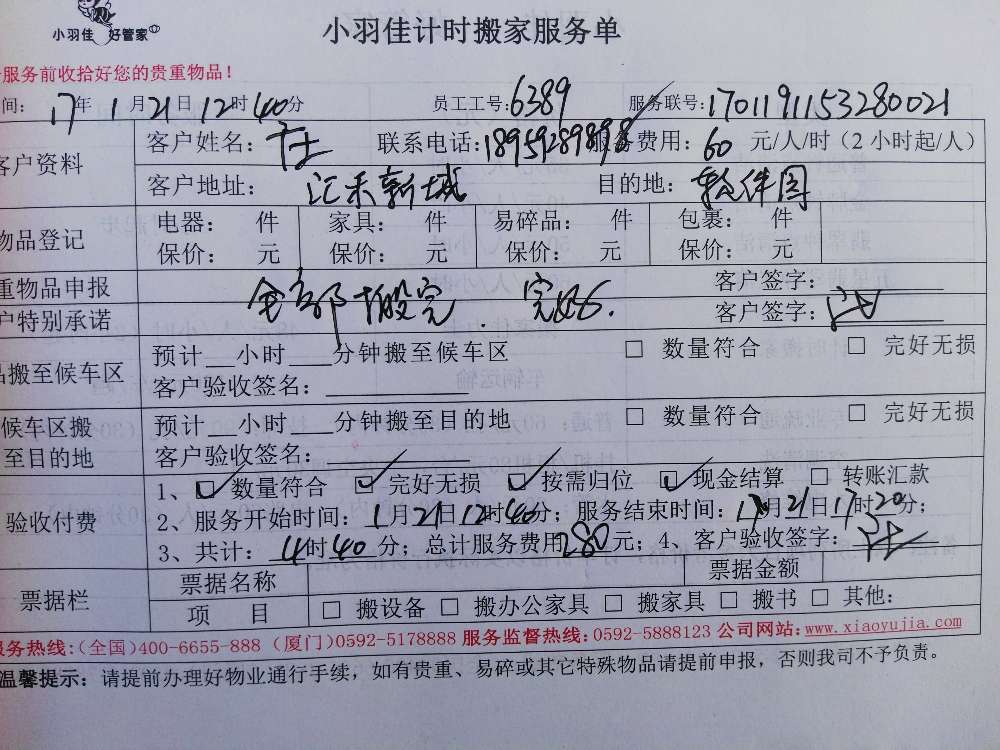 小羽佳 好管家
小羽佳计时搬家服务单
服务前收拾好您的贵重物品！
间：17年1月21日12时40分 员工工号：6389 服务联号：1701191153280021
客户资料 客户姓名： 联系电话：18959289898 服务费用：60 元/人/时（2 小时起/人）
客户地址：汇禾新城 目的地：软件园
物品登记 电器： 件 家具： 件 易碎品： 件 包裹： 件
保价： 元 保价： 元 保价： 元 保价： 元
重物品申报 客户签字：
户特别承诺 全部搬完．完好． 客户签字：
品搬至候车区 预计__小时___分钟搬至候车区 □ 数量符合 □ 完好无损
客户验收签名：
候车区搬至目的地 预计__小时___分钟搬至目的地 □ 数量符合 □ 完好无损
客户验收签名：
验收付费 1、☑数量符合 ☑完好无损 ☑按需归位 ☑现金结算 □ 转账汇款
2、服务开始时间：1月21日12时40分；服务结束时间：1月21日17时20分；
3、共计：4时40分；总计服务费用280元；4、客户验收签字：
票据栏 票据名称 票据金额
项 目 □ 搬设备 □ 搬办公家具 □ 搬家具 □ 搬书 □ 其他：
服务热线:(全国)400-6655-888 (厦门)0592-5178888 服务监督热线:0592-5888123 公司网站:www.xiaoyujia.com
温馨提示：请提前办理好物业通行手续，如有贵重、易碎或其它特殊物品请提前申报，否则我司不予负责。